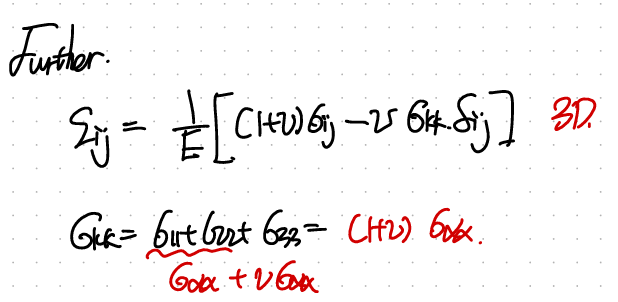 Further.
εij = 1/E [(1+ν)σij − ν σkk.δij] 3D.
σkk = σ11 + σ22 + σ33 = (1+ν) σαα.
σαα + νσαα